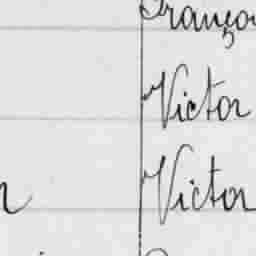 Françoi
Victor
Victor